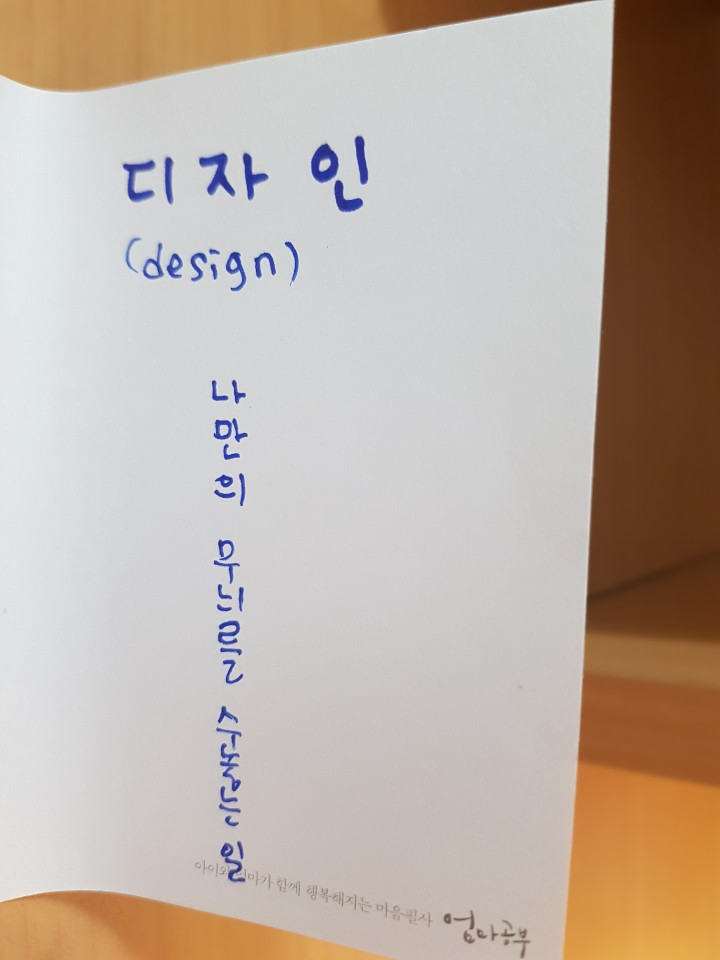 디자인
(design)
나만의 무늬를 수놓는 일
아이와 엄마가 함께 행복해지는 마음필사 엄마공부